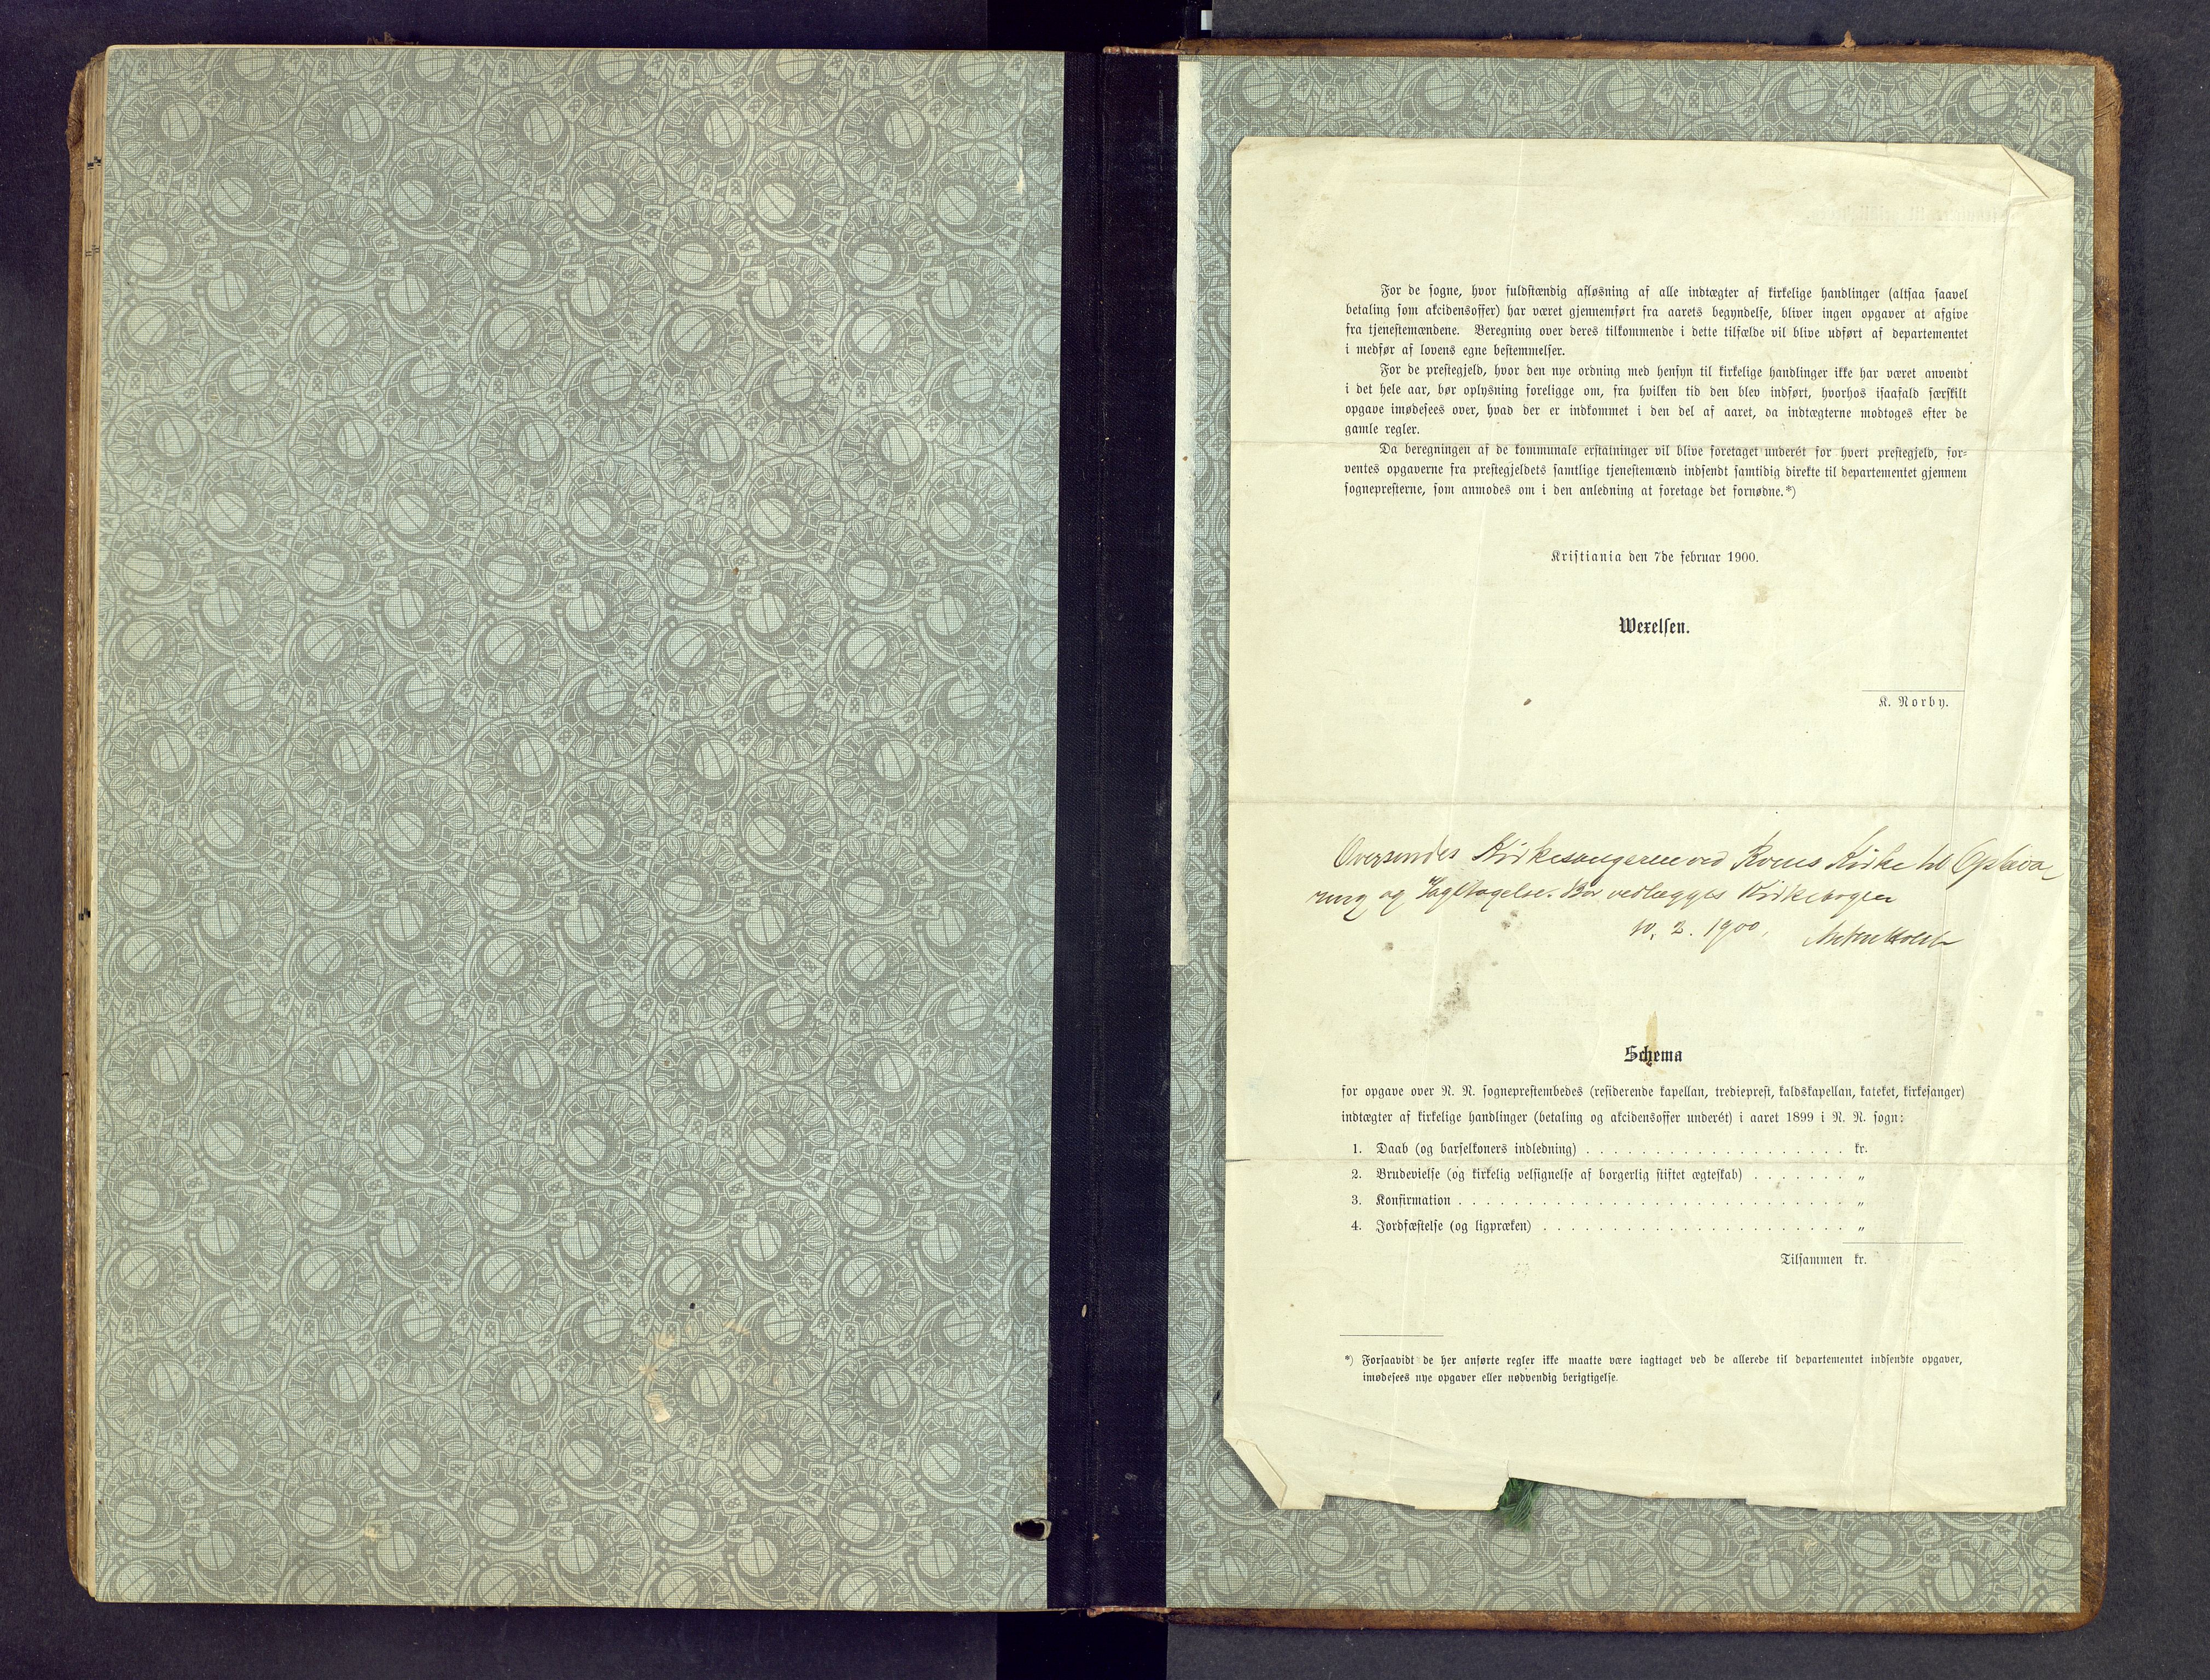 For de sogne, hvor fuldstændig afløsning af alle indtægter af kirkelige handlinger (altsaa saavel
betaling som akcidensoffer) har været gjennemført fra aarets begyndelse, bliver ingen opgaver at afgive
fra tjenestemændene. Beregning over deres tilkommende i dette tilfælde vil blive udført af departementet
i medfør af lovens egne bestemmelser.
For de prestegjeld, hvor den nye ordning med hensyn til kirkelige handlinger ikke har været anvendt
i det hele aar, bør oplysning foreligge om, fra hvilken tid den blev indført, hvorhos isaafald særskilt
opgave imødesees over, hvad der er indkommet i den del af aaret, da indtægterne modtoges efter de
gamle regler.
Da beregningen af de kommunale erstatninger vil blive foretaget underét for hvert prestegjeld, for-
ventes opgaverne fra prestegjeldets samtlige tjenestemænd indsendt samtidig direkte til departementet gjennem
sognepresterne, som anmodes om i den anledning at foretage det fornødne.*)
Kristiania den 7de februar 1900.
Wexelsen.
K. Norby.
Oversendes Kirkesangeren ved Kirke til Opbeva-
ring og Iagttagelse. Bør vedlægges Kirkebogen
10. 2. 1900.
Schema
for opgave over N. N. sogneprestembedes (residerende kapellan, tredieprest, kaldskapellan, kateket, kirkesanger)
indtægter af kirkelige handlinger (betaling og akcidensoffer underét) i aaret 1899 i N. N. sogn:
1. Daab (og barselkoners indledning) . . . . . . . . . . . . . . . . . . . kr.
2. Brudevielse (og kirkelig velsignelse af borgerlig stiftet ægteskab) . . . . . . . „
3. Konfirmation . . . . . . . . . . . . . . . . . . . . . . . . . . . . „
4. Jordfæstelse (og ligpræken) . . . . . . . . . . . . . . . . . . . . . . „
Tilsammen kr.
*) Forsaavidt de her anførte regler ikke maatte være iagttaget ved de allerede til departementet indsendte opgaver,
imødesees nye opgaver eller nødvendig berigtigelse.